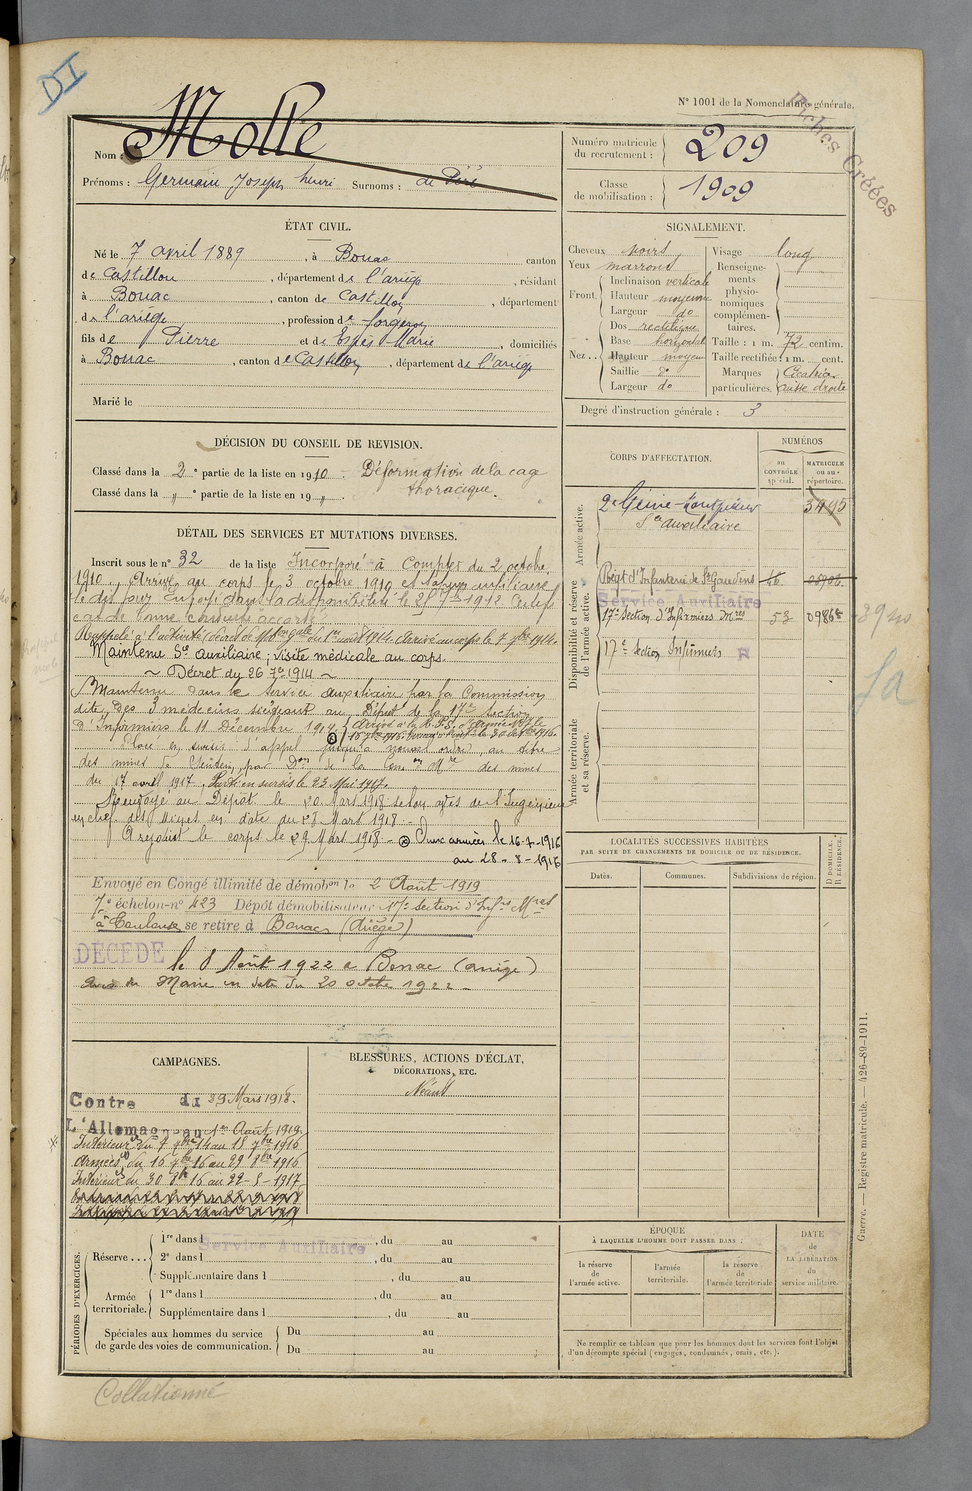 DI
N° 1001 de la Nomenclature générale.
Fiches Créées
Nom : Molle
Prénoms : Germain Joseph henri Surnoms : de Péré
Numéro matricule du recrutement : 209
Classe de mobilisation : 1909
ÉTAT CIVIL.
Né le 7 avril 1889, à Bonac canton
de Castillon, département de l'ariège, résidant
à Bonac, canton de Castillon, département
de l'ariège, profession de forgeron
fils de Pierre et de Espès Marie, domiciliés
à Bonac, canton de Castillon, département de l'ariège
Marié le
SIGNALEMENT.
Cheveux noirs
Yeux marrons
Front. Inclinaison verticale
Hauteur moyenne
Largeur do
Nez.. Dos rectiligne
Base horizontale
Hauteur moyen
Saillie do
Largeur do
Visage long
Renseignements physionomiques complémentaires.
Taille : 1 m. 72 centim.
Taille rectifiée : 1 m. cent.
Marques particulières. Cicatrice cuisse droite
Degré d'instruction générale : 3
DÉCISION DU CONSEIL DE REVISION.
Classé dans la 2e partie de la liste en 1910. Déformation de la cage
Classé dans la " e partie de la liste en 19 ". thoracique.
DÉTAIL DES SERVICES ET MUTATIONS DIVERSES.
Inscrit sous le n° 32 de la liste Incorporé à Compter du 2 octobre
1910. Arrivé au corps le 3 octobre 1910 et
le dit jour Envoyé dans la disponibilité le 25 7bre 1912 Certificat
de bonne conduite accordé.
Rappelé à l'activité (décret de Mob. gale du 1er août 1914. Arrivé au corps le 7 9bre 1914.
Maintenu Sce auxiliaire, visite médicale au corps.
~ Décret du 26 7bre 1914 ~
Maintenu dans le service auxiliaire par la Commission
dite des 3 médecins siégeant au Dépôt de la 17e Section
d'Infirmiers le 11 Décembre 1914
Placé en sursis d'appel jusqu'à nouvel ordre, au titre
des mines de Sentein, par Don de la Com on Mre des mines
du 17 avril 1917. Parti en sursis le 23 Mai 1917.
Renvoyé au Dépôt le 20 Mars 1918 selon avis de l'Ingénieur
en chef des Mines en date du 28 Mars 1918
A rejoint le corps le 29 Mars 1918 - Aux armées le 16-7-1916
au 28-8-1916
Envoyé en Congé illimité de démobon le 2 Août 1919
7e échelon-n° 423 Dépôt démobilisateur 17e Section d'Infrs Mres
à Toulouse se retire à Bonac (Ariège)
DÉCÉDÉ le 8 Août 1922 à Bonac (ariège)
avis du Maire en date du 20 octobre 1922
CORPS D'AFFECTATION.
NUMÉROS
au CONTRÔLE spécial.
MATRICULE ou au répertoire.
Armée active.
Service auxiliaire
3495
Disponibilité et réserve de l'armée active.
Régt d'Infanterie de St Gaudens
Service Auxiliaire
17e Section d'Infirmiers Mres 53 09868
17e Section Infirmiers R
Armée territoriale et sa réserve.
LOCALITÉS SUCCESSIVES HABITÉES
PAR SUITE DE CHANGEMENTS DE DOMICILE OU DE RÉSIDENCE.
Dates.
Communes.
Subdivisions de région.
D. DOMICILE. R. RÉSIDENCE.
CAMPAGNES.
Contre du 29 Mars 1918.
L'Allemagne au 1er Août 1919.
Intérieur du 7 9bre 14 au 15 7bre 1916
Armées du 16 7bre 16 au 29 8bre 1916
Intérieur du 30 8bre 16 au 22-5-1917
BLESSURES, ACTIONS D'ÉCLAT,
DÉCORATIONS, ETC.
Néant
PÉRIODES D'EXERCICES.
Réserve ... 1re dans l , du au
Service Auxiliaire
2e dans l , du au
Supplémentaire dans l , du au
Armée territoriale. 1re dans l , du au
Supplémentaire dans l , du au
Spéciales aux hommes du service de garde des voies de communication. Du au
Du au
ÉPOQUE
À LAQUELLE L'HOMME DOIT PASSER DANS :
la réserve de l'armée active.
l'armée territoriale.
la réserve de l'armée territoriale
DATE de LA LIBÉRATION du service militaire.
Ne remplir ce tableau que pour les hommes dont les services font l'objet
d'un décompte spécial (engagés, condamnés, omis, etc.).
Guerre. — Registre matricule. — 426-89-1911.
Collationné